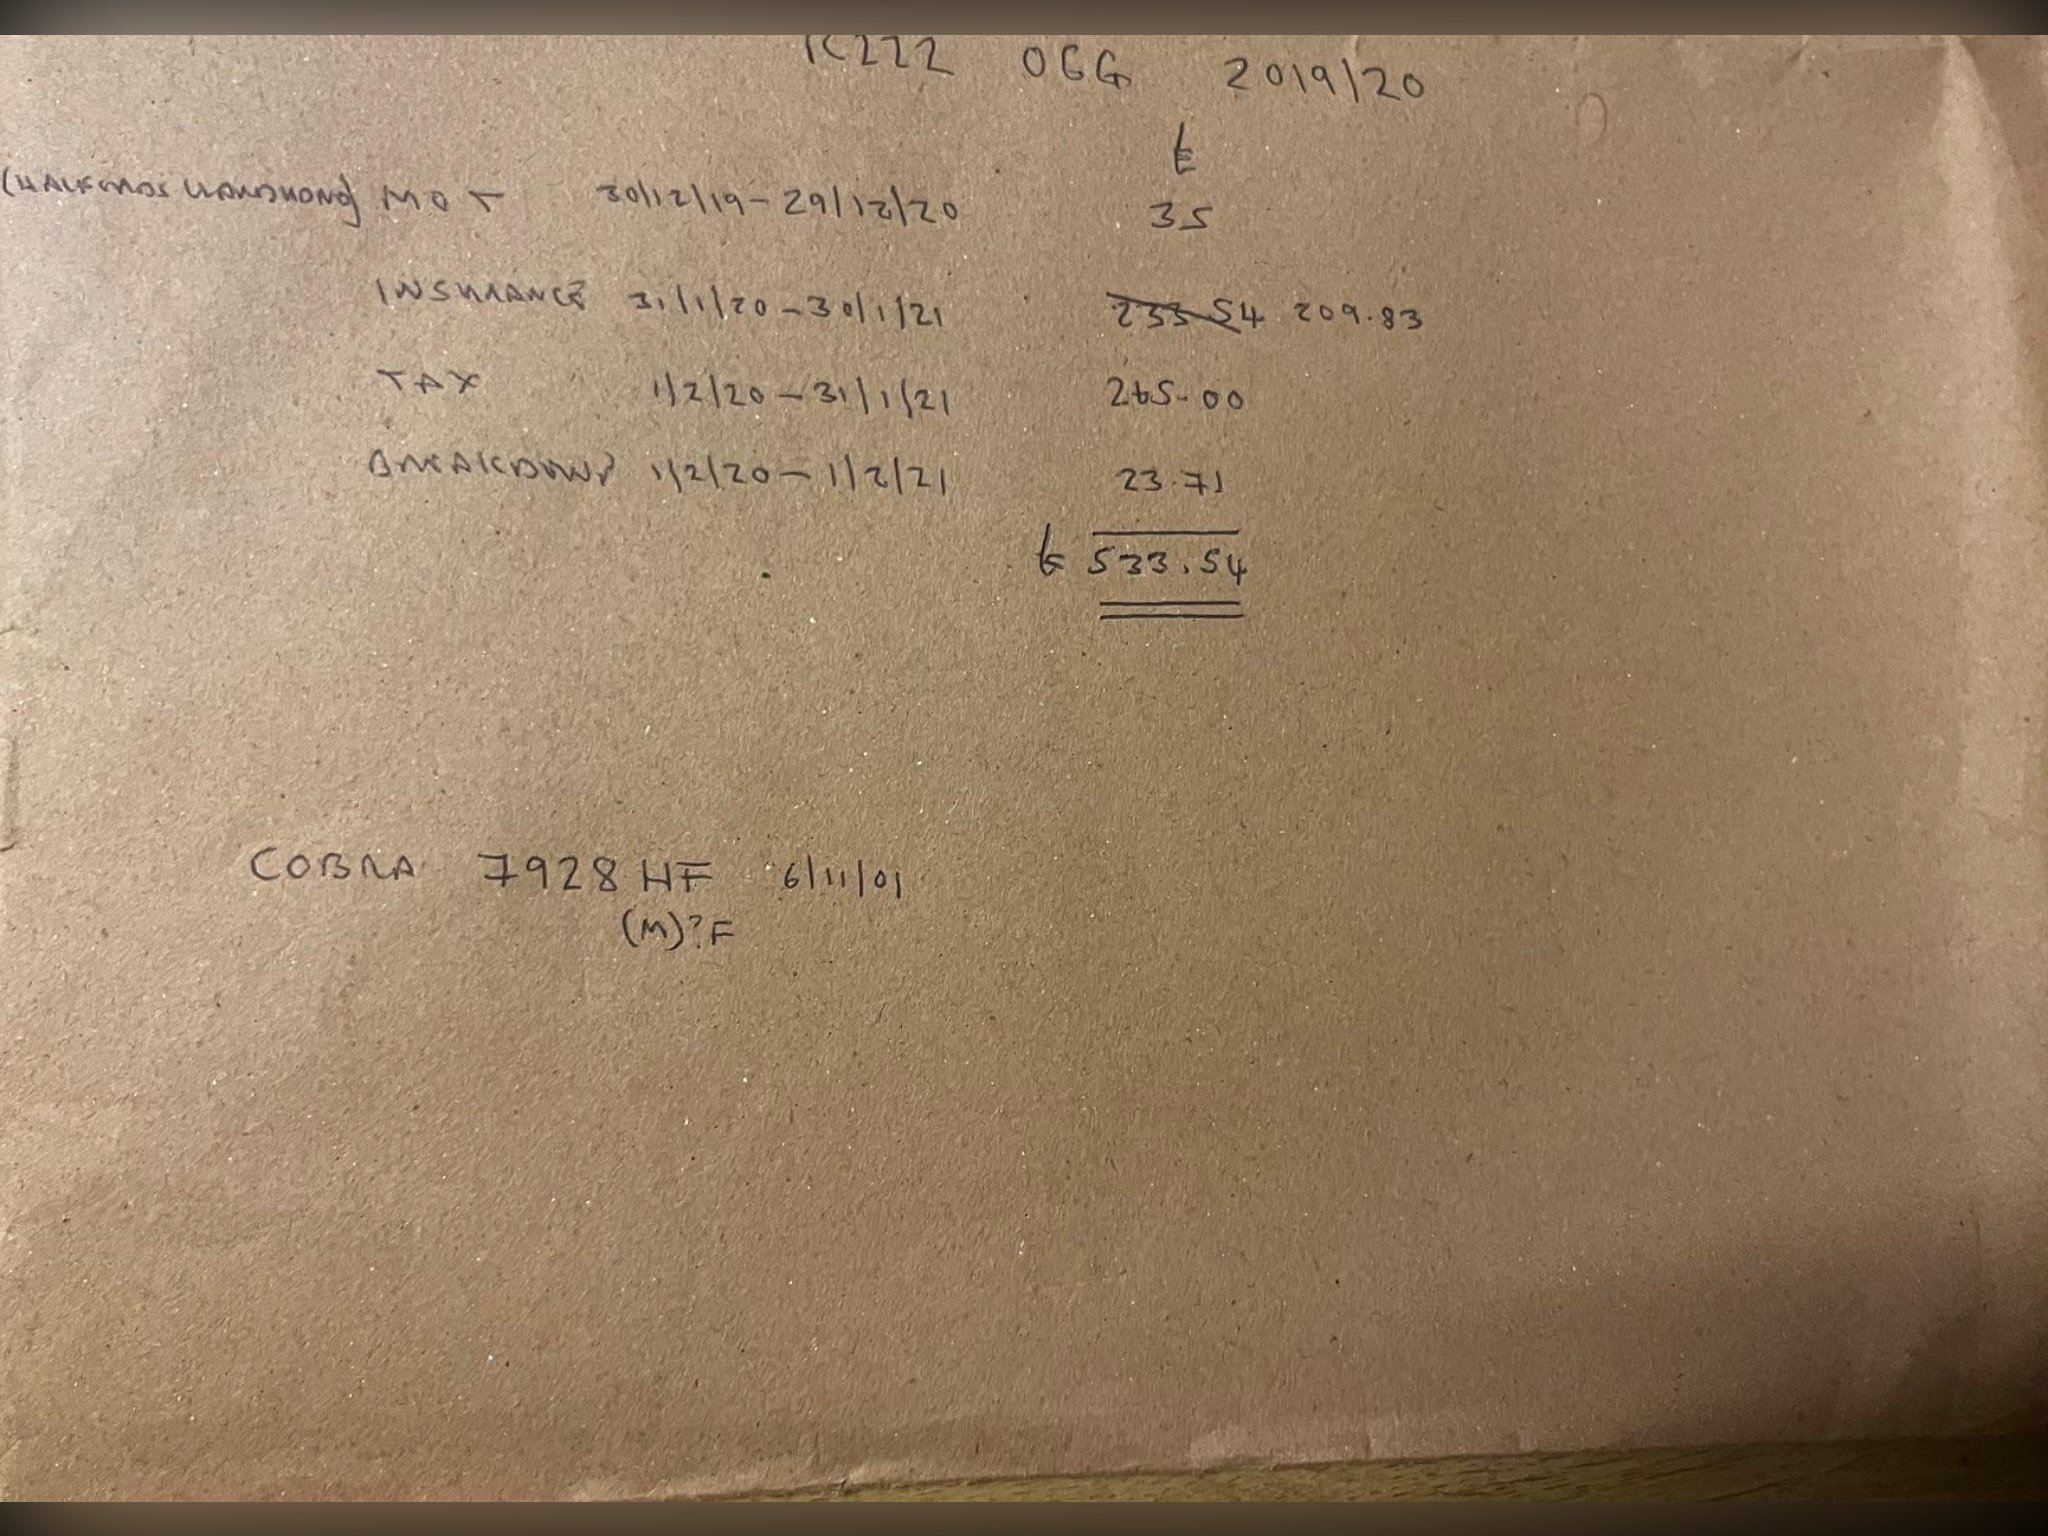 OGG 2019/20
£
MOT 30/12/19 - 29/12/20 35
INSURANCE 31/1/20 - 30/1/21 233 54 209.83
TAX 1/2/20 - 31/1/21 265.00
BREAKDOWN 1/2/20 - 1/2/21 23.71
£ 533.54
COBRA 7928 HF 6/11/01
(M)?F